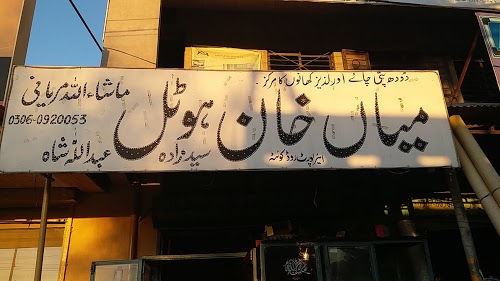 دودھ پتی چائے اور لذیز کھانوں کا مرکز
میاں خان ہوٹل
ماشاءاللہ مریانی
0306-0920053
سید زادہ عبداللہ شاہ
ایئرپورٹ روڈ کوئٹہ